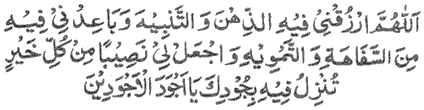 اَللّٰهُمَّ ارْزُقْنِيْ فِيْهِ الذِّهْنَ وَ التَّنْبِيْهَ وَ بَاعِدْنِيْ فِيْهِ
مِنَ السَّفَاهَةِ وَ التَّمْوِيْهِ وَ اجْعَلْ لِيْ نَصِيْبًا مِنْ كُلِّ خَيْرٍ
تُنْزِلُ فِيْهِ بِجُوْدِكَ يَا اَجْوَدَ الْاَجْوَدِيْنَ